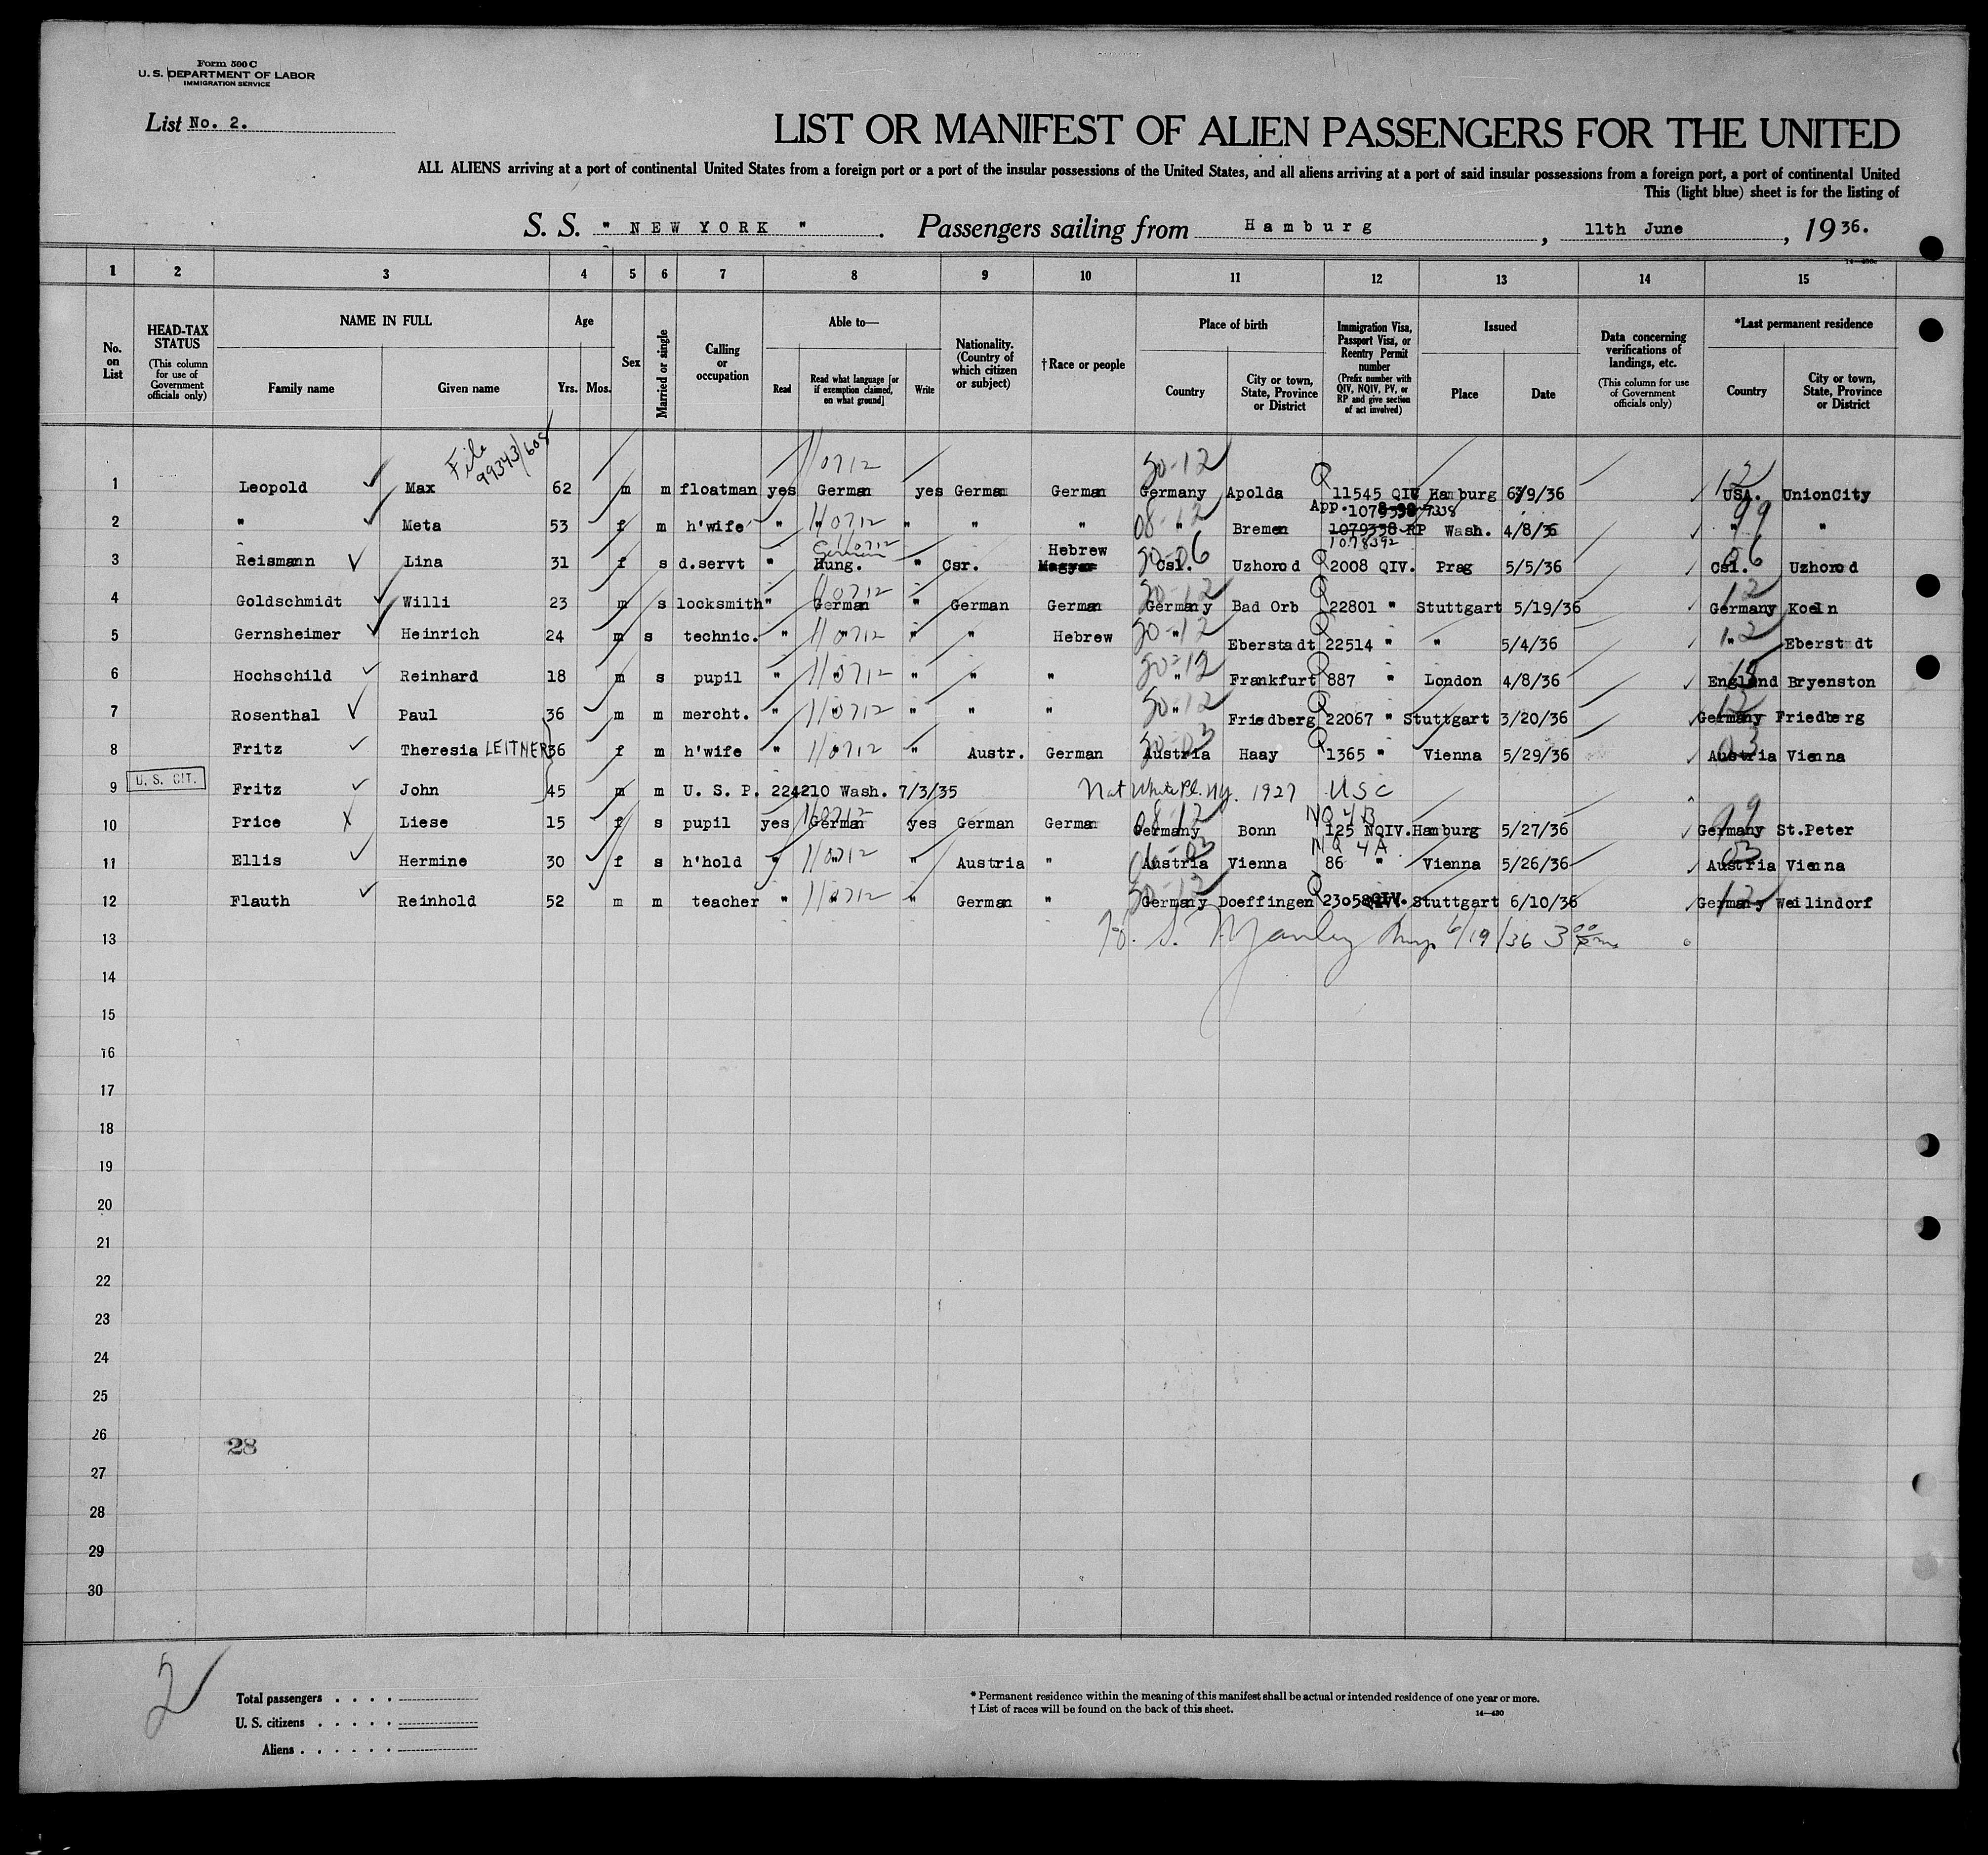 Form 500 C
U. S. DEPARTMENT OF LABOR
IMMIGRATION SERVICE
List No. 2.
LIST OR MANIFEST OF ALIEN PASSENGERS FOR THE UNITED
ALL ALIENS arriving at a port of continental United States from a foreign port or a port of the insular possessions of the United States, and all aliens arriving at a port of said insular possessions from a foreign port, a port of continental United
This (light blue) sheet is for the listing of
S. S. " NEW YORK " . Passengers sailing from Hamburg , 11th June , 19 36.
1 2 3 4 5 6 7 8 9 10 11 12 13 14 15
No. on List
HEAD-TAX STATUS (This column for use of Government officials only)
NAME IN FULL Family name Given name
Age Yrs. Mos.
Sex
Married or single
Calling or occupation
Able to— Read Read what language [or if exemption claimed, on what ground] Write
Nationality. (Country of which citizen or subject)
†Race or people
Place of birth Country City or town, State, Province or District
Immigration Visa, Passport Visa, or Reentry Permit number (Prefix number with QIV, NQIV, PV, or RP and give section of act involved)
Issued Place Date
Data concerning verifications of landings, etc. (This column for use of Government officials only)
*Last permanent residence Country City or town, State, Province or District
File 99343/608
110712 30-12 Q 12
1 Leopold Max 62 m m floatman yes German yes German German Germany Apolda 11545 QIV Hamburg 6/9/36 USA. UnionCity
App. 99
2 " Meta 53 f m h'wife " " 110712 " " " 08-12 " Bremen 1079338 RP Wash. 4/8/36 " "
1078392
German 110712 Hebrew
3 Reismann Lina 31 f s d.servt " Hung. " Csr. Magyar 30-06 Csl. Uzhorod Q 2008 QIV. Prag 5/5/36 06 Csl. Uzhorod
110712 30-12 12
4 Goldschmidt Willi 23 m s locksmith " German " German German Germany Bad Orb Q 22801 " Stuttgart 5/19/36 Germany Koeln
5 Gernsheimer Heinrich 24 m s technic. " " 110712 " " Hebrew 30-12 " Eberstadt Q 22514 " " 5/4/36 12 " Eberstadt
6 Hochschild Reinhard 18 m s pupil " " 110712 " " " 30-12 " Frankfurt Q 887 " London 4/8/36 England Bryenston
7 Rosenthal Paul 36 m m mercht. " " 110712 " " " 30-12 " Friedberg Q 22067 " Stuttgart 3/20/36 12 Germany Friedberg
8 Fritz Theresia LEITNER 36 f m h'wife " " 110712 " Austr. German 30-03 Austria Haay Q 1365 " Vienna 5/29/36 03 Austria Vienna
U. S. CIT.
9 Fritz John 45 m m U. S. P. 224210 Wash. 7/3/35 Nat White Pl. N.Y. 1927 USC
110712 08-12 NQ 4B 99
10 Price Liese 15 f s pupil yes German yes German German Germany Bonn 125 NQIV. Hamburg 5/27/36 Germany St.Peter
NQ 4A
11 Ellis Hermine 30 f s h'hold " " 110712 " Austria " 06-03 Austria Vienna 86 " Vienna 5/26/36 03 Austria Vienna
12 Flauth Reinhold 52 m m teacher " " 110712 " German " 30-12 Germany Doeffingen Q 23058 QIV. Stuttgart 6/10/36 12 Germany Weilindorf
13 S. Manley Insp 6/19/36 3 00 pm
14
15
16
17
18
19
20
21
22
23
24
25
26 28
27
28
29
30
2
Total passengers . . . .
U. S. citizens . . . . .
Aliens . . . . . .
* Permanent residence within the meaning of this manifest shall be actual or intended residence of one year or more.
† List of races will be found on the back of this sheet. 14—430